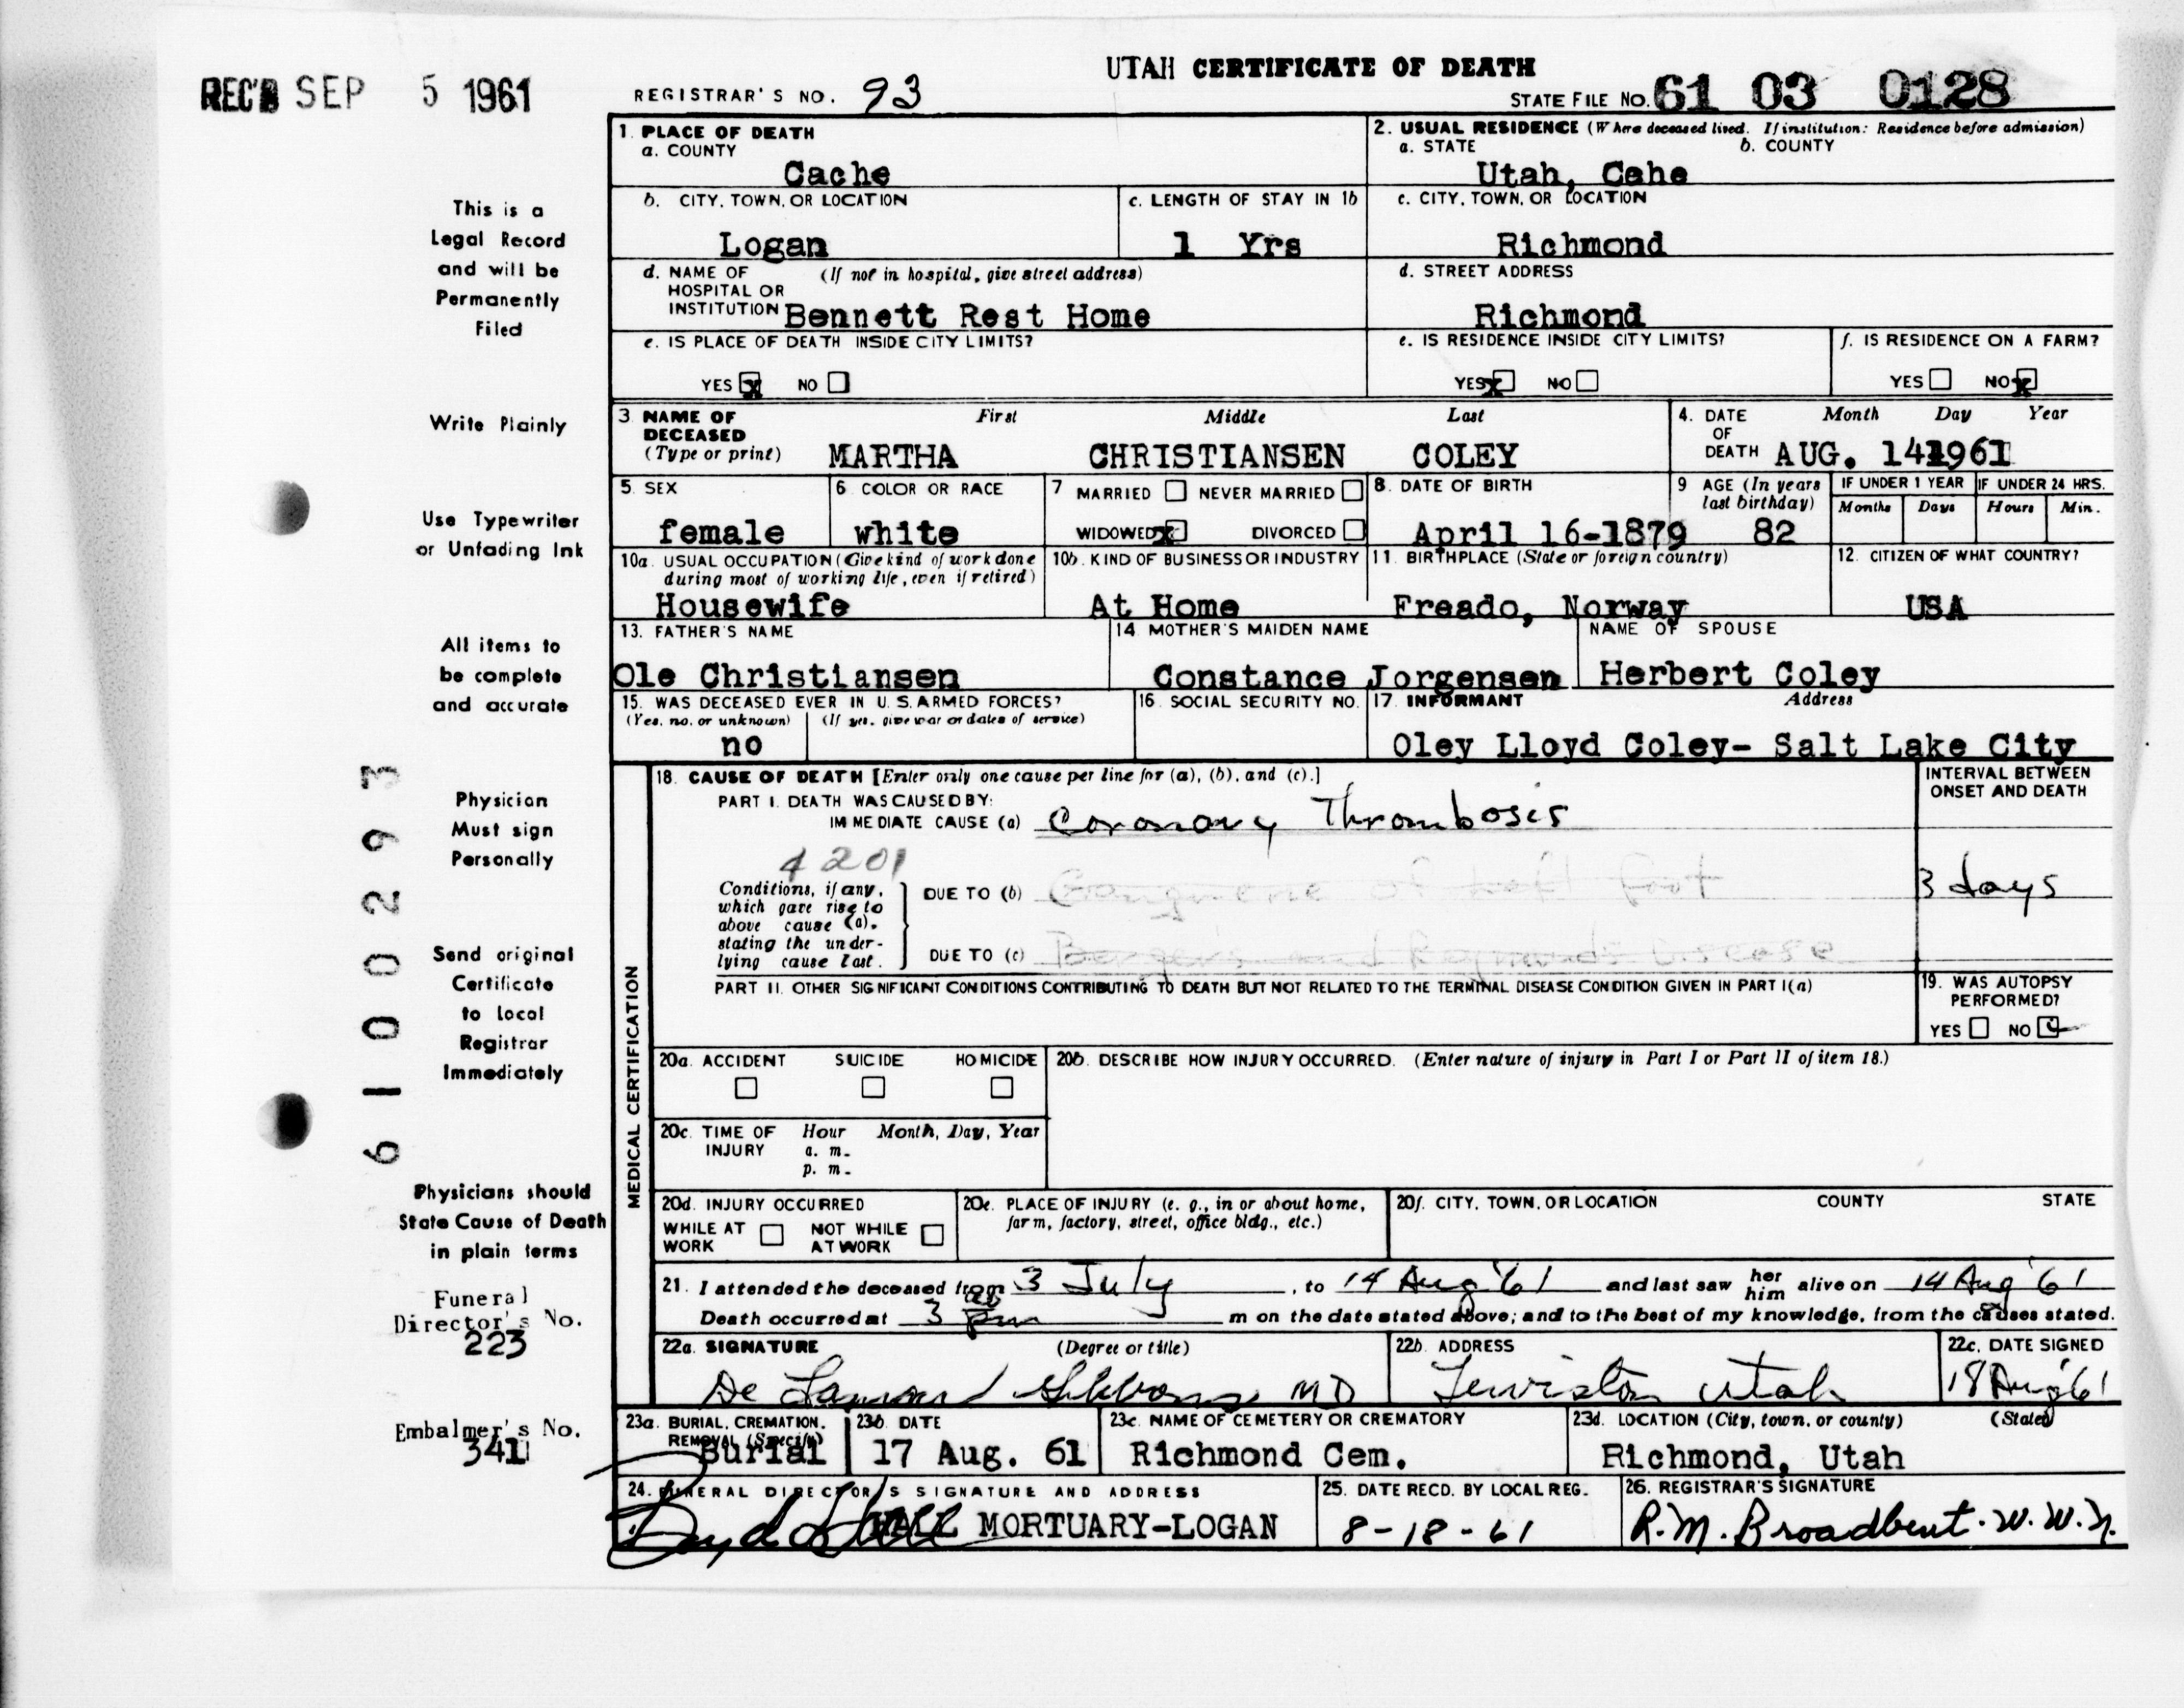 UTAH CERTIFICATE OF DEATH
REC'D SEP 5 1961
REGISTRAR'S NO. 93
STATE FILE NO. 61 03 0128
1. PLACE OF DEATH
a. COUNTY
Cache
2. USUAL RESIDENCE (Where deceased lived. If institution: Residence before admission)
a. STATE b. COUNTY
Utah, Cahe
b. CITY, TOWN, OR LOCATION
Logan
c. LENGTH OF STAY IN 1b
1 Yrs
c. CITY, TOWN, OR LOCATION
Richmond
d. NAME OF HOSPITAL OR INSTITUTION (If not in hospital, give street address)
Bennett Rest Home
d. STREET ADDRESS
Richmond
e. IS PLACE OF DEATH INSIDE CITY LIMITS?
YES x NO
e. IS RESIDENCE INSIDE CITY LIMITS?
YES x NO
f. IS RESIDENCE ON A FARM?
YES NO x
3. NAME OF DECEASED (Type or print)
First Middle Last
MARTHA CHRISTIANSEN COLEY
4. DATE OF DEATH
Month Day Year
AUG. 14 1961
5. SEX
female
6. COLOR OR RACE
white
7 MARRIED NEVER MARRIED
WIDOWED x DIVORCED
8. DATE OF BIRTH
April 16-1879
9 AGE (In years last birthday)
82
IF UNDER 1 YEAR
Months Days
IF UNDER 24 HRS.
Hours Min.
10a. USUAL OCCUPATION (Give kind of work done during most of working life, even if retired)
Housewife
10b. KIND OF BUSINESS OR INDUSTRY
At Home
11. BIRTHPLACE (State or foreign country)
Freado, Norway
12. CITIZEN OF WHAT COUNTRY?
USA
13. FATHER'S NAME
Ole Christiansen
14. MOTHER'S MAIDEN NAME
Constance Jorgensen
NAME OF SPOUSE
Herbert Coley
15. WAS DECEASED EVER IN U.S. ARMED FORCES?
(Yes, no, or unknown) (If yes, give war or dates of service)
no
16. SOCIAL SECURITY NO.
17. INFORMANT Address
Oley Lloyd Coley- Salt Lake City
MEDICAL CERTIFICATION
18. CAUSE OF DEATH [Enter only one cause per line for (a), (b), and (c).]
INTERVAL BETWEEN ONSET AND DEATH
PART I. DEATH WAS CAUSED BY:
IMMEDIATE CAUSE (a) Coronary Thrombosis
4201
Conditions, if any, which gave rise to above cause (a), stating the underlying cause last.
DUE TO (b) Gangrene of Left foot
3 days
DUE TO (c) Disease
PART II. OTHER SIGNIFICANT CONDITIONS CONTRIBUTING TO DEATH BUT NOT RELATED TO THE TERMINAL DISEASE CONDITION GIVEN IN PART I(a)
19. WAS AUTOPSY PERFORMED?
YES NO
20a. ACCIDENT SUICIDE HOMICIDE
20b. DESCRIBE HOW INJURY OCCURRED. (Enter nature of injury in Part I or Part II of item 18.)
20c. TIME OF INJURY Hour Month, Day, Year
a. m.
p. m.
20d. INJURY OCCURRED
WHILE AT WORK NOT WHILE AT WORK
20e. PLACE OF INJURY (e. g., in or about home, farm, factory, street, office bldg., etc.)
20f. CITY, TOWN, OR LOCATION COUNTY STATE
21. I attended the deceased from 3 July, to 14 Aug '61 and last saw her him alive on 14 Aug '61
Death occurred at 3 pm m on the date stated above; and to the best of my knowledge, from the causes stated.
22a. SIGNATURE (Degree or title)
MD
22b. ADDRESS
Lewiston Utah
22c. DATE SIGNED
18 Aug '61
23a. BURIAL, CREMATION, REMOVAL (Specify)
Burial
23b. DATE
17 Aug. 61
23c. NAME OF CEMETERY OR CREMATORY
Richmond Cem.
23d. LOCATION (City, town, or county) (State)
Richmond, Utah
24. FUNERAL DIRECTOR'S SIGNATURE AND ADDRESS
HALL MORTUARY-LOGAN
25. DATE RECD. BY LOCAL REG.
8-18-61
26. REGISTRAR'S SIGNATURE
R.M. Broadbent. W.W.N.
This is a
Legal Record
and will be
Permanently
Filed
Write Plainly
Use Typewriter
or Unfading Ink
All items to
be complete
and accurate
Physician
Must sign
Personally
Send original
Certificate
to Local
Registrar
Immediately
Physicians should
State Cause of Death
in plain terms
Funeral
Director's No.
223
Embalmer's No.
341
6100293